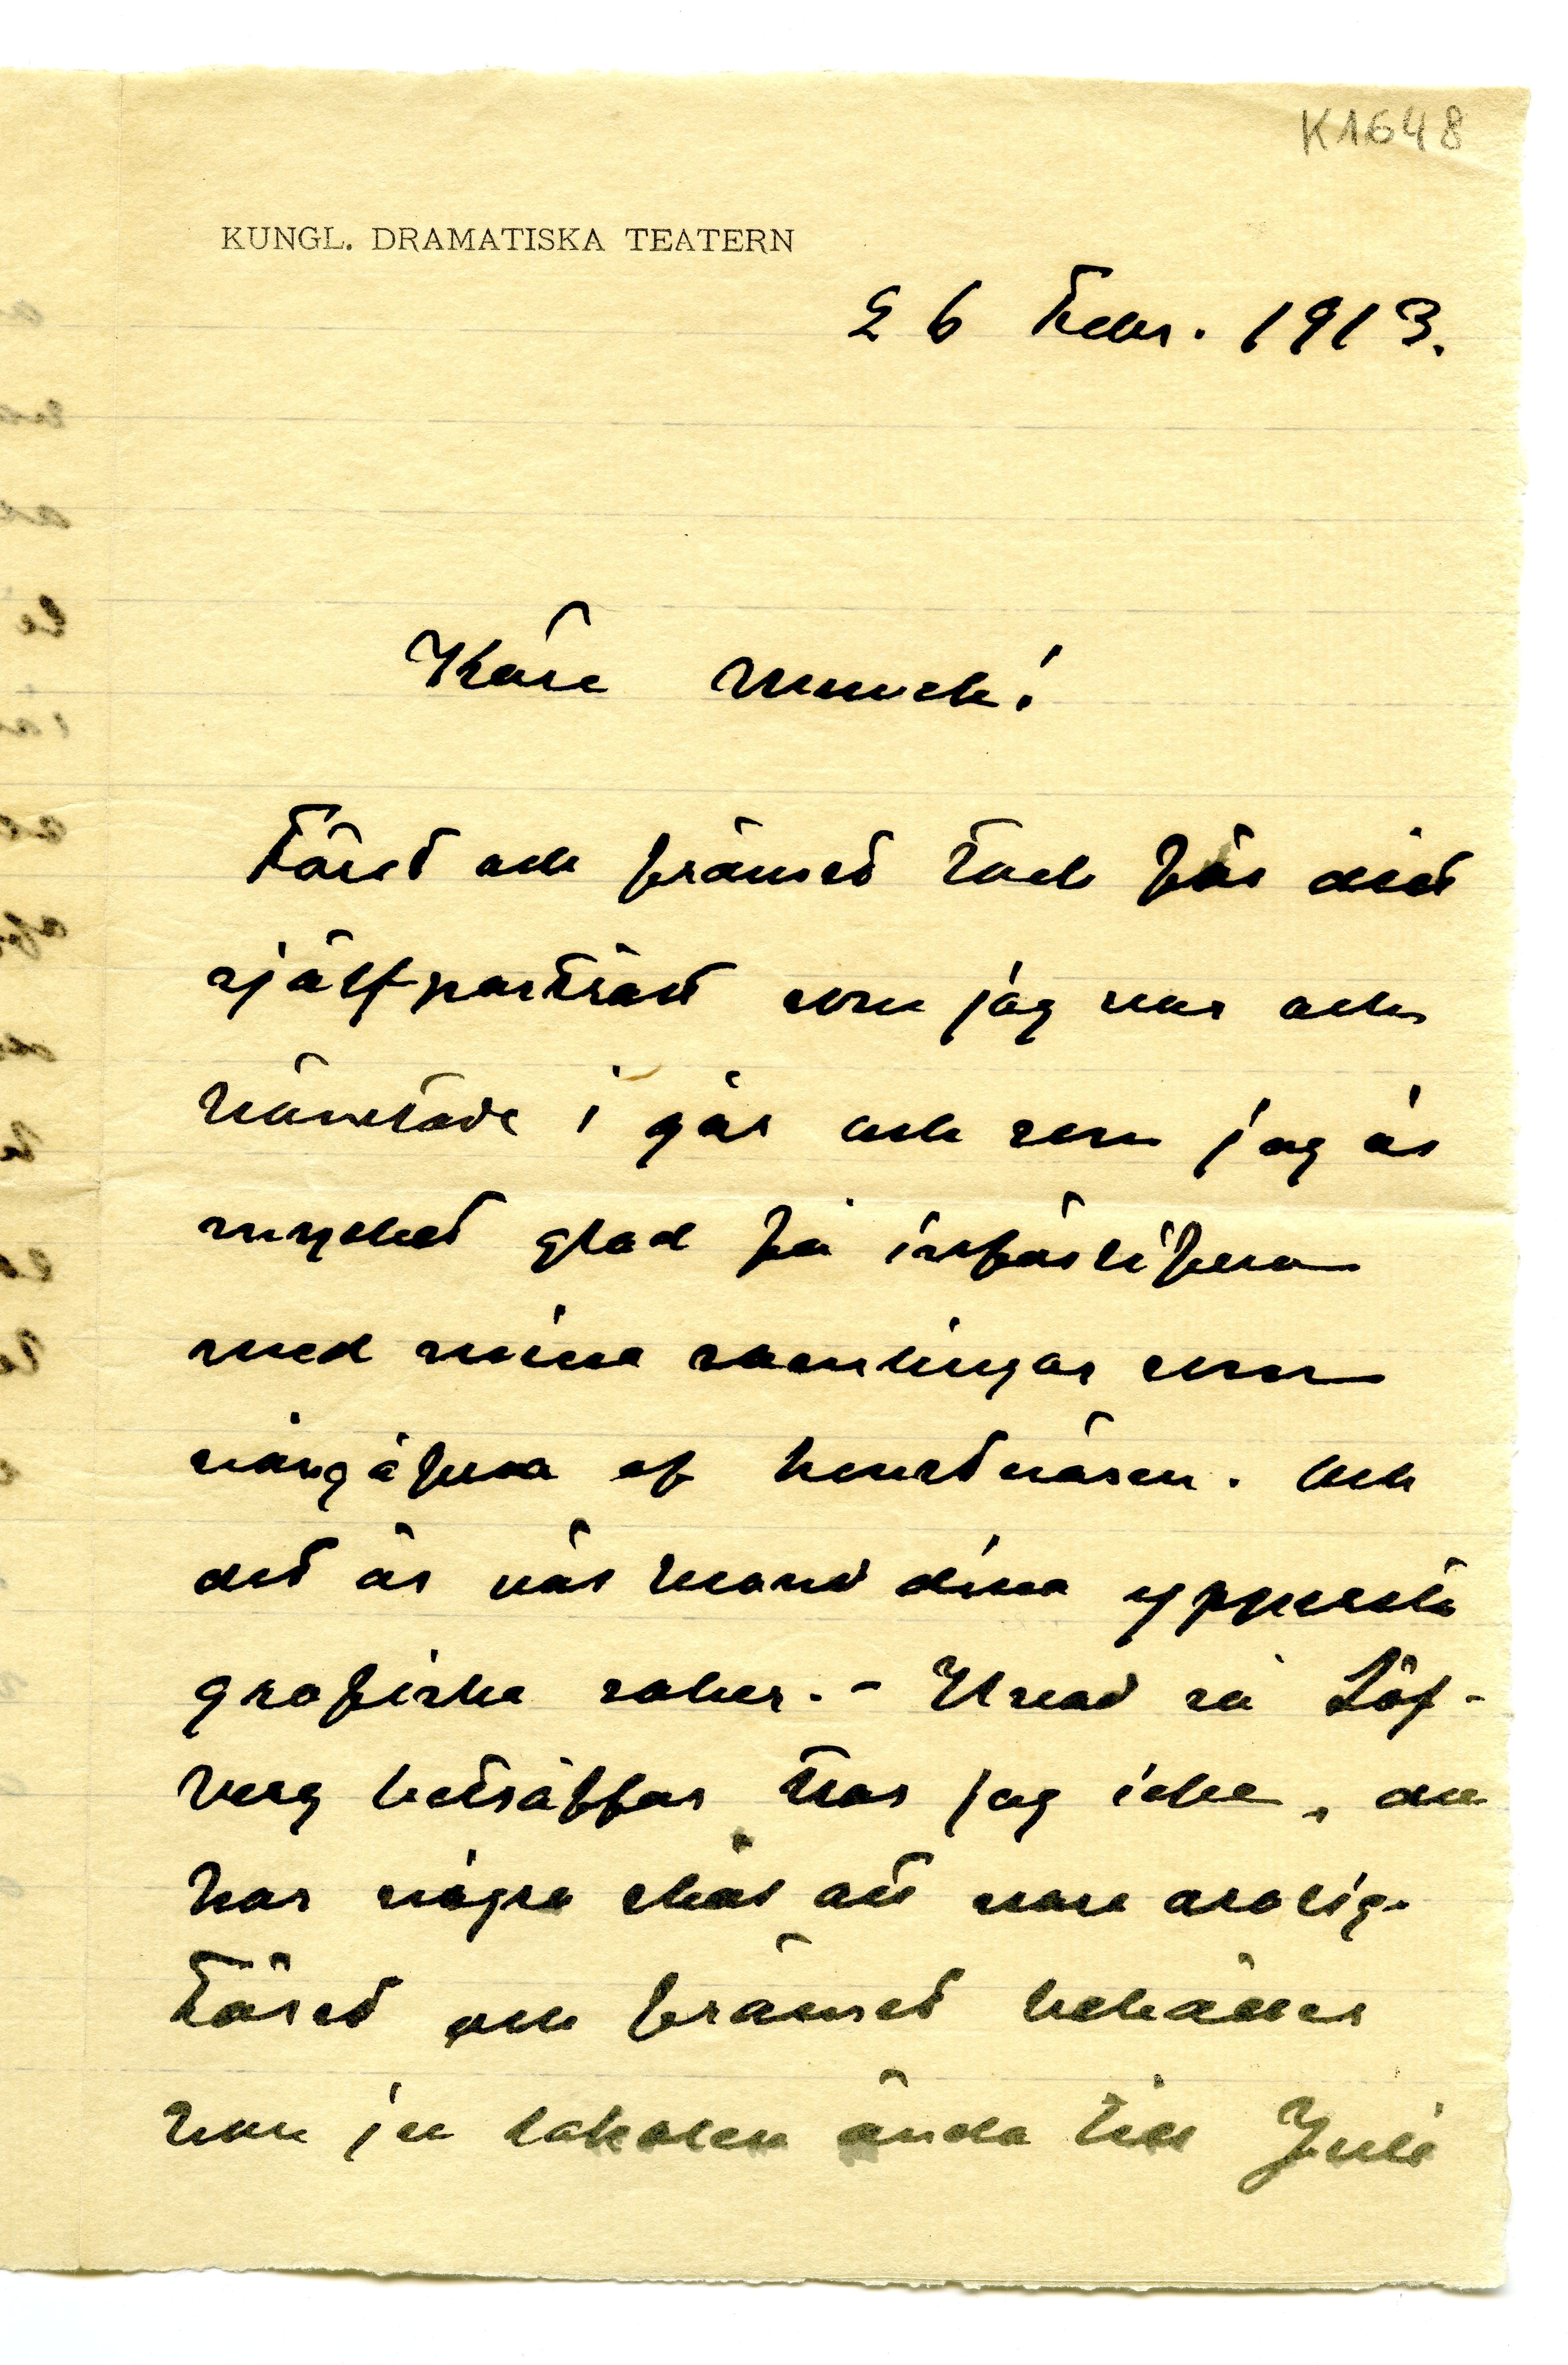 K1648
KUNGL. DRAMATISKA TEATERN
26 Febr. 1913.
Käre Munch!
Först och främst tack för ditt
självporträtt som jag var och
hämtade i går och som jag är
mycket glad få införlifva
med mina samlingar som
af konstnären. Och
det är väl bland dina ypperste
grafiska saker. – Hvad så Löf-
berg beträffar tror jag icke, du
har några skäl att vara orolig.
Först och främst behåller
han ju lokalen ända till Juli